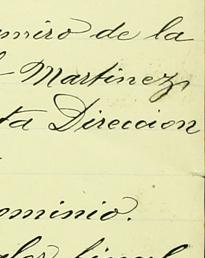 mero de la
Martinez
ta Direccion
ominio.